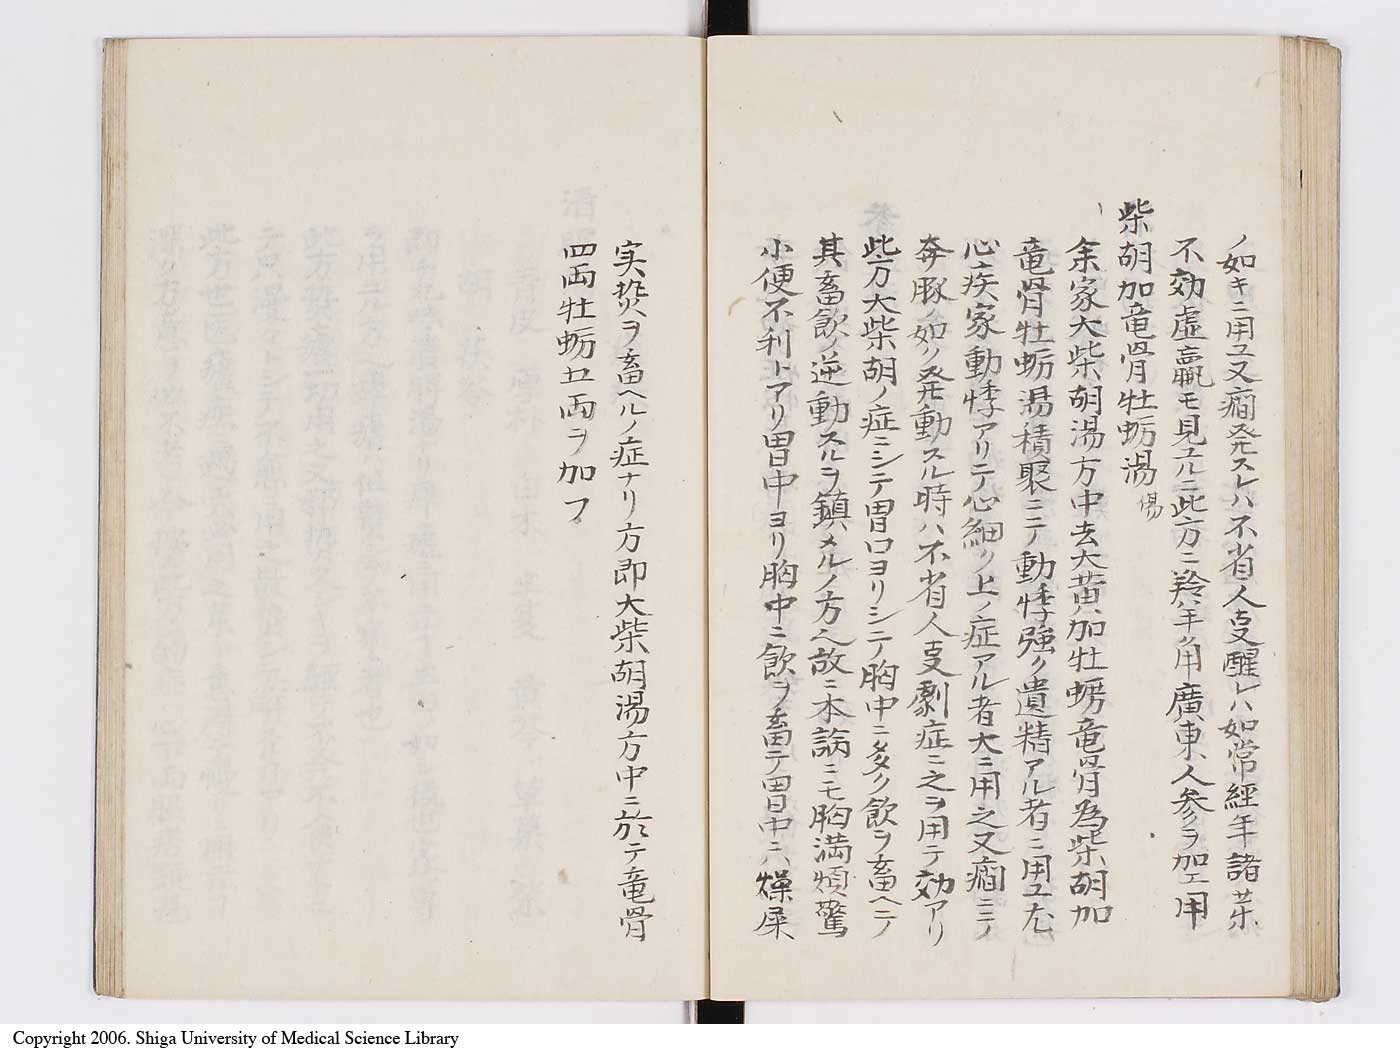 ノ如キニ用ユ又癇発スレハ不省人支醒レハ如常經年諸茱
不効虚羸モ見ユルニ此方ニ羚羊角廣東人参ヲ加エ用
柴胡加竜骨牡蛎湯 傷
余家大柴胡湯方中去大黄加牡蛎竜骨為柴胡加
竜骨牡蛎湯積聚ニテ動悸強ク遺精アル者ニ用ユ尤
心疾家動悸アリテ心細ク上ノ症アル者大ニ用之又癇ニテ
奔豚ノ如ク発動スル時ハ不省人支劇症ニ之ヲ用テ効アリ
此方大柴胡ノ症ニシテ胃口ヨリシテ胸中ニ多ク飲ヲ畜ヘテ
其畜飲ノ逆動スルヲ鎮メルノ方也故ニ本論ニモ胸満煩驚
小便不利トアリ胃中ヨリ胸中ニ飲ヲ畜テ胃中ハ燥屎
実熒ヲ畜ヘルノ症ナリ方即大柴胡湯方中ニ於テ竜骨
四両牡蛎五両ヲ加フ
Copyright 2006. Shiga University of Medical Science Library